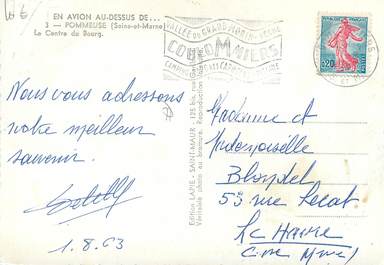 EN AVION AU-DESSUS DE...
3 — POMMEUSE (Seine-et-Marne)
Le Centre du Bourg.
VALLÉE DU GRAND MORIN
COULOMMIERS
CAMPING
0,20
Edition LAPIE - SAINT-MAUR
Véritable photo au bromure. Reproduction
Nous vous adressons
notre meilleur
souvenir.
1.8.63
Madame et
Mademoiselle
Blondel
53 rue
Le Havre